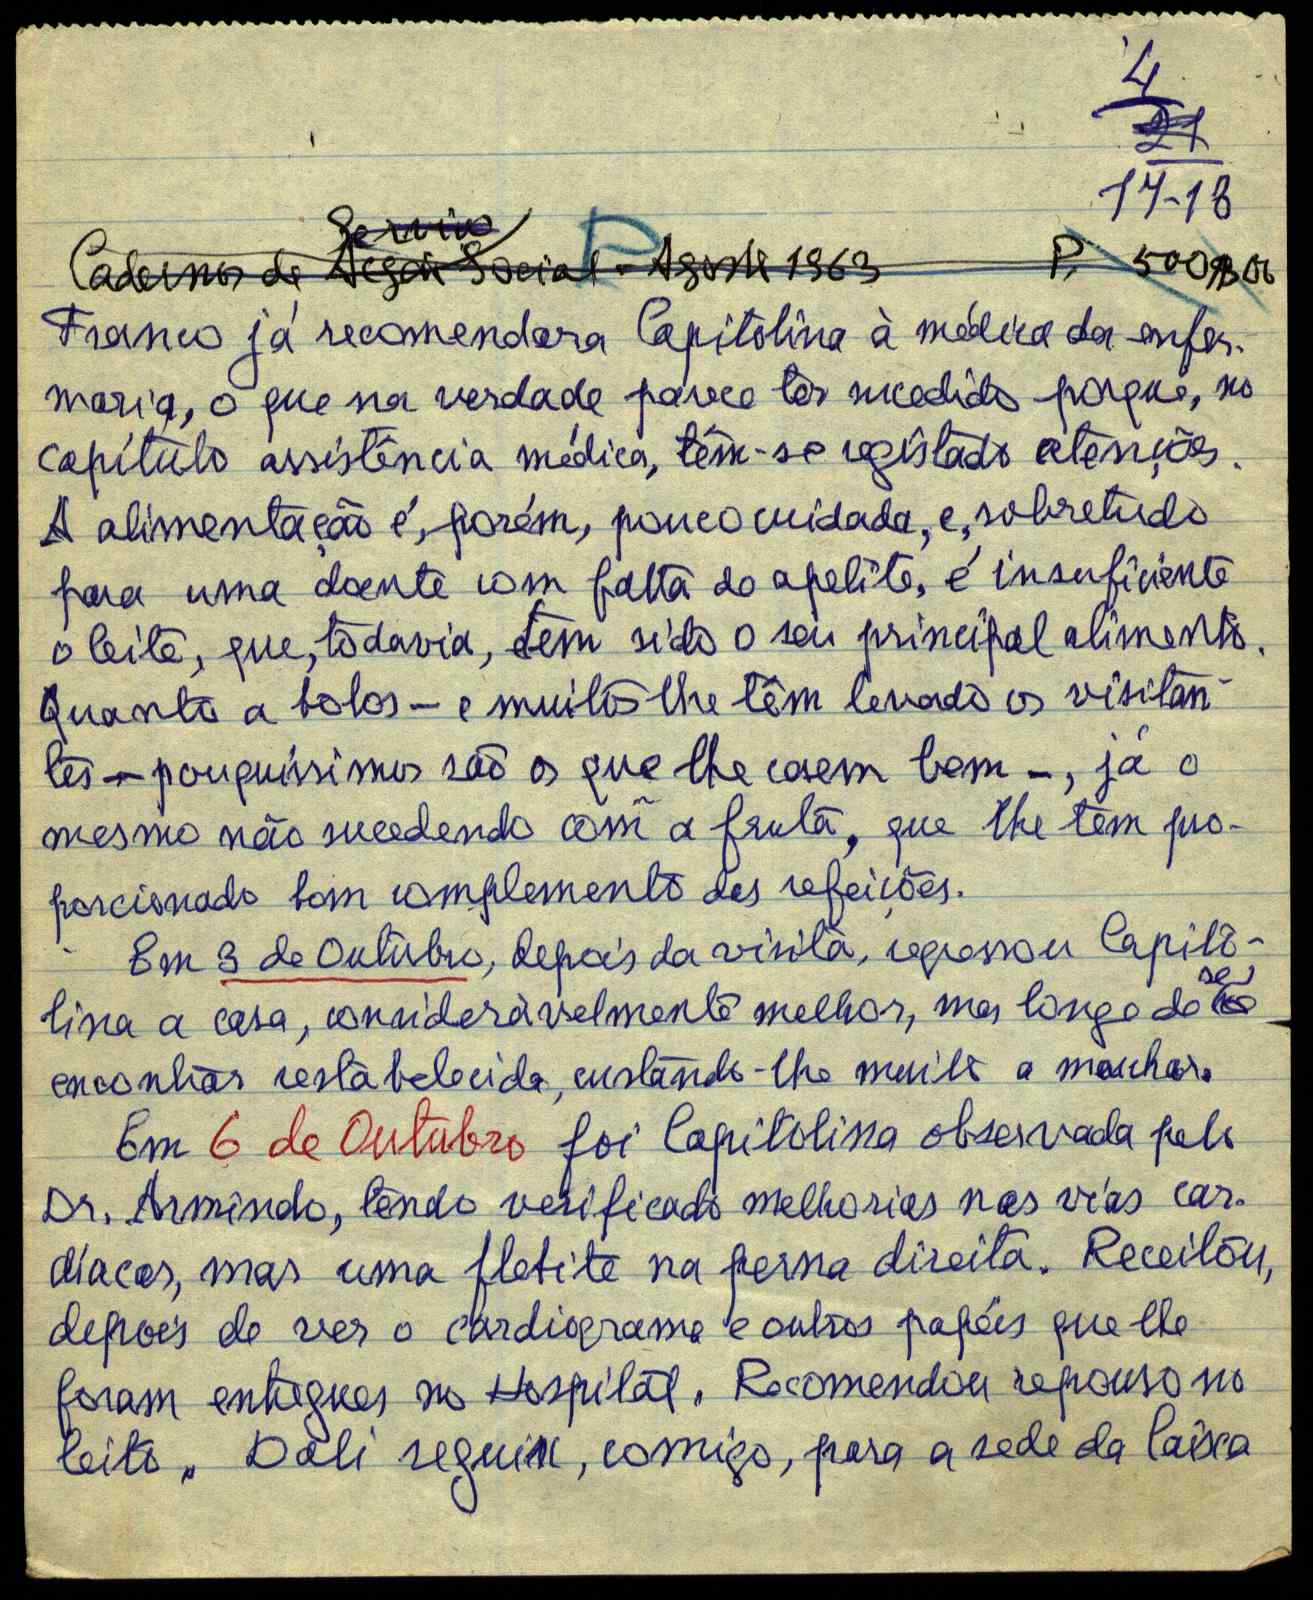 4
21
17-18
Serviço
Cadernos de Acção Social - Agosto 1963 P. 500
Franco já recomendara Capitolina à médica da enfer-
maria, o que na verdade parece ter sucedido porque, no
capítulo assistência médica, têm-se registado atenções.
A alimentação é, porém, pouco cuidada, e, sobretudo
para uma doente com falta de apetite, é insuficiente
o leite, que, todavia, tem sido o seu principal alimento.
Quanto a bolos — e muitos lhe têm levado os visitan-
tes — pouquíssimos são os que lhe caem bem —, já o
mesmo não sucedendo com a fruta, que lhe tem pro-
porcionado bom complemento das refeições.
Em 3 de Outubro, depois da visita, regressou Capito-
lina a casa, consideràvelmente melhor, mas longe de se
encontrar restabelecida, custando-lhe muito a marchar.
Em 6 de Outubro foi Capitolina observada pelo
Dr. Armindo, tendo verificado melhorias nas vias car-
díacas, mas uma flebite na perna direita. Receitou,
depois de ver o cardiograma e outros papéis que lhe
foram entregues no Hospital. Recomendou repouso no
leito. Dali seguiu, comigo, para a sede da Caixa